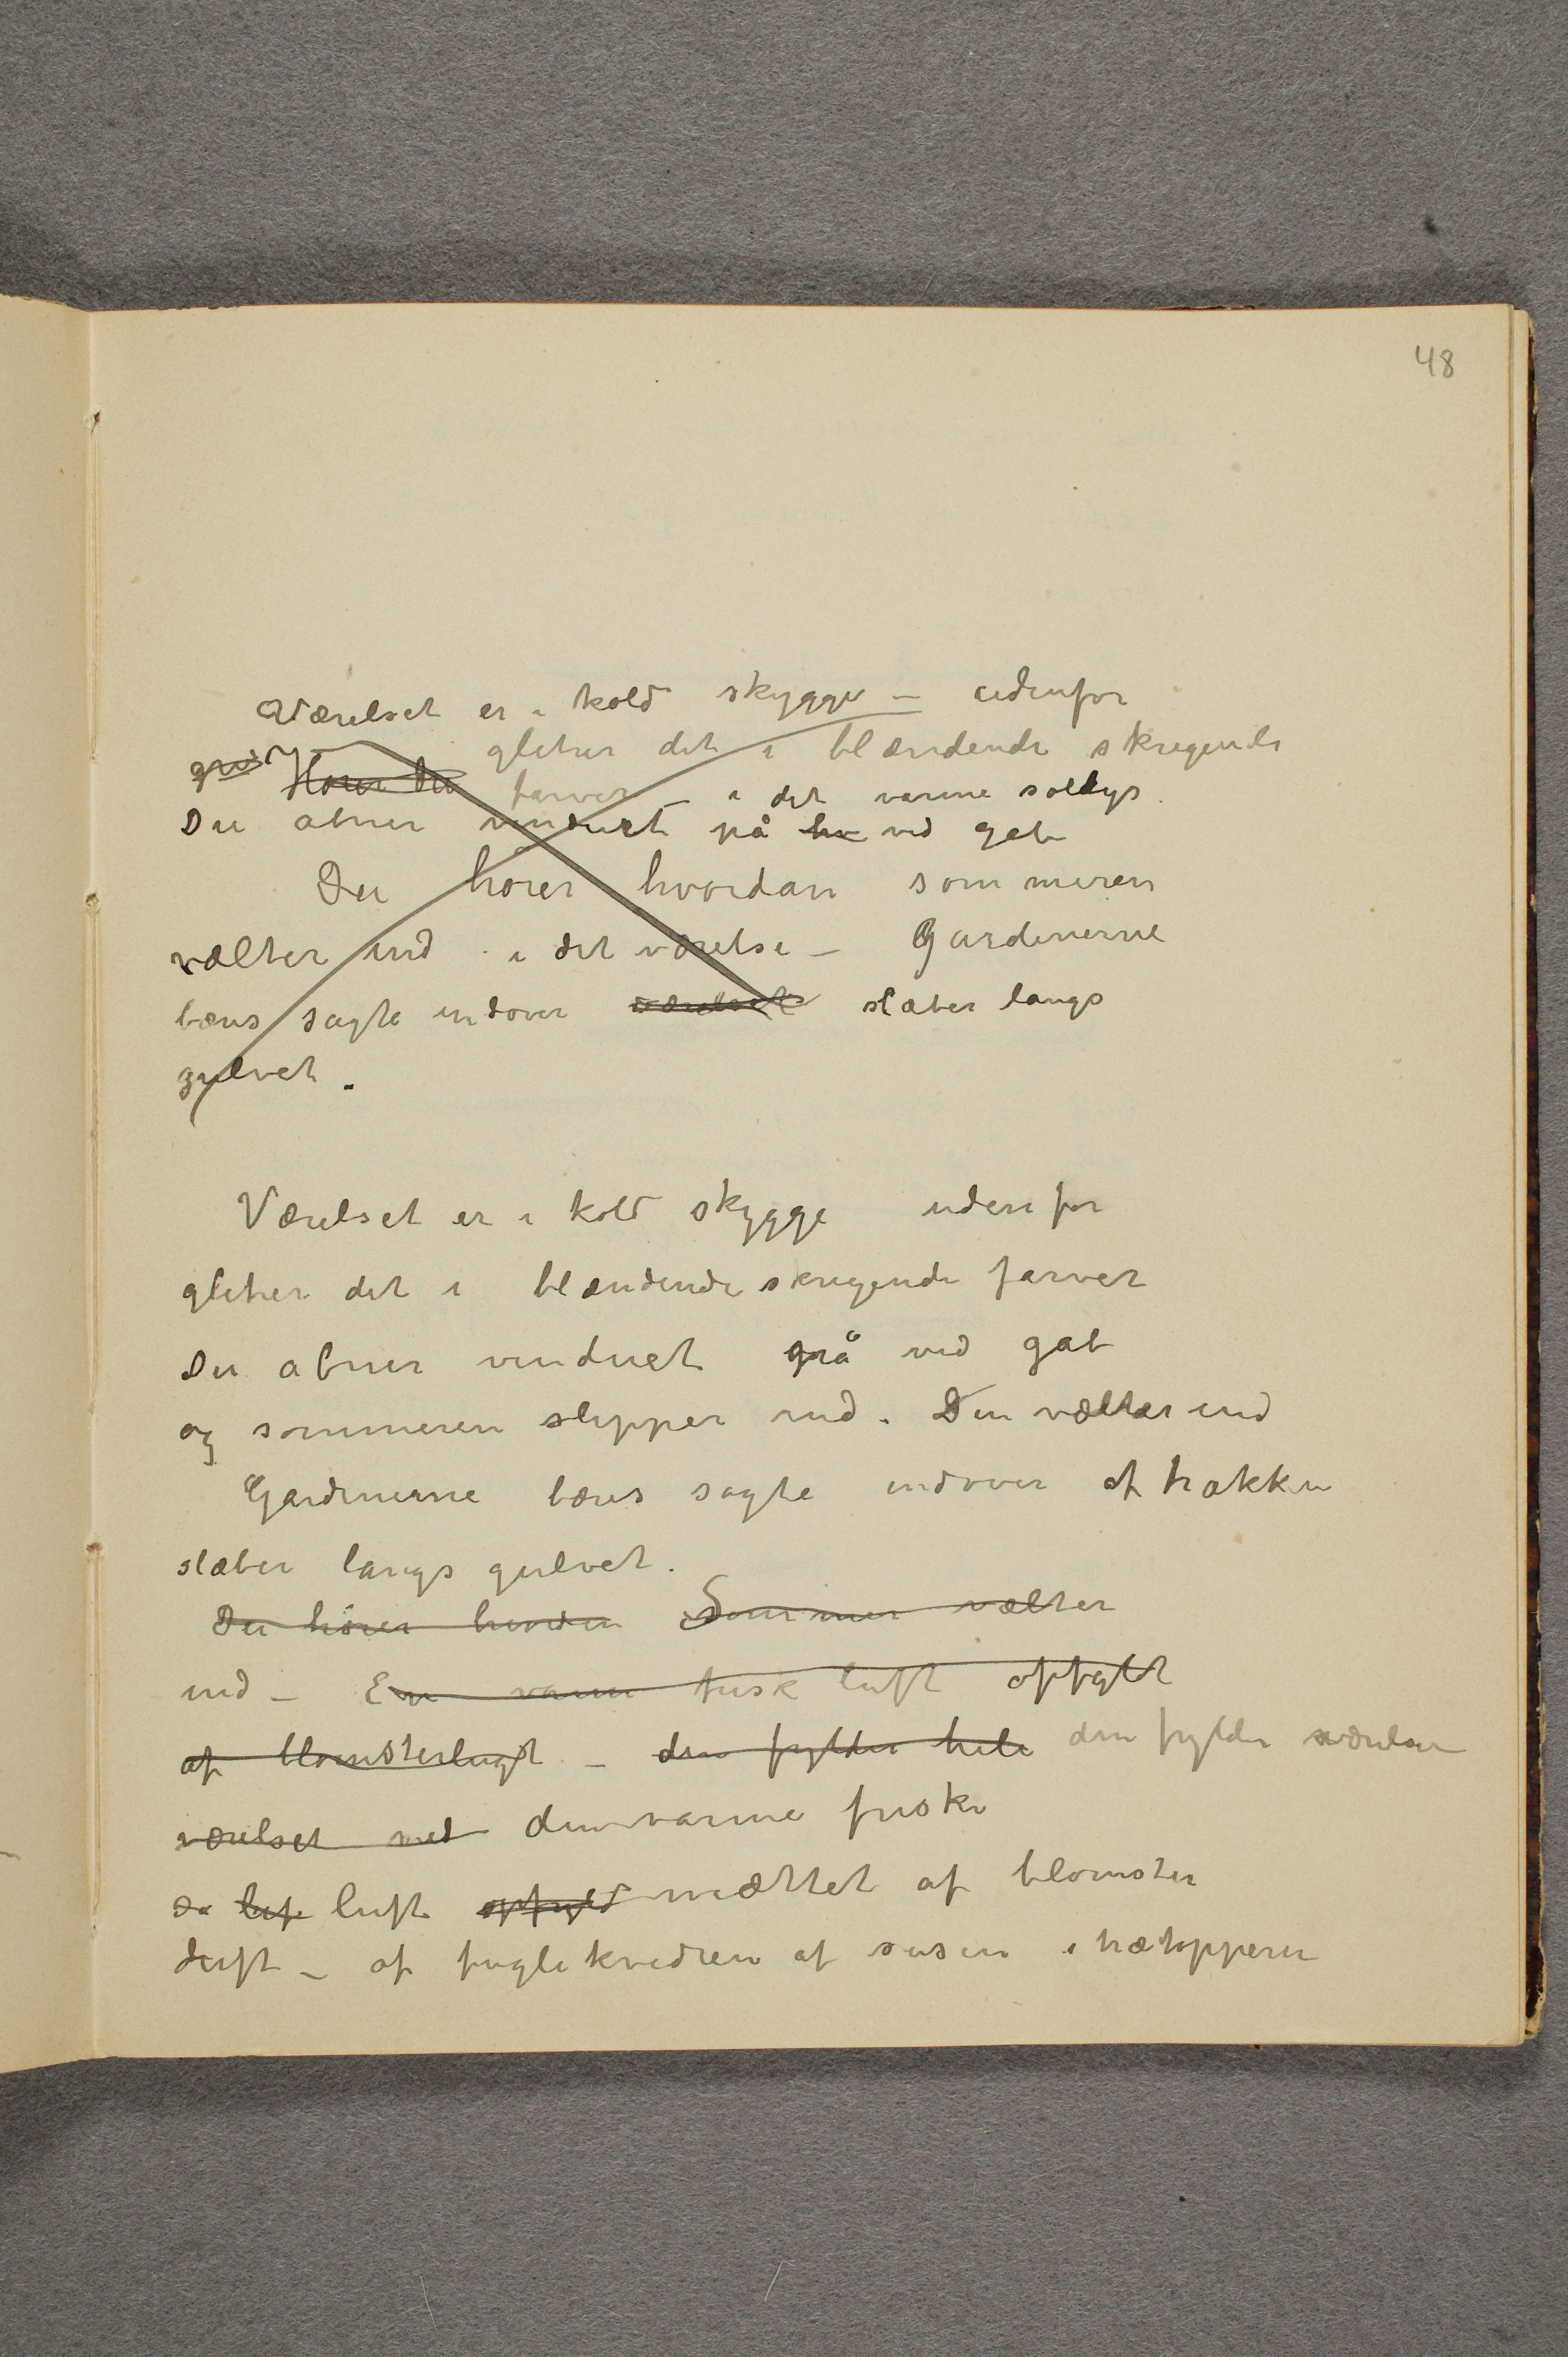 48
Værelset er i kold skygge – udenfor
glitrer det i blændende skrigende
Hører Du farver – i det varme sollys.
Du åbner vinduet på hv vid gab
Du hører hvordan sommeren
vælter ind i det værelse – Gardinerne
bæres sagte indover værelset slæber langs
gulvet.
Værelset er i kold skygge udenfor
glitrer det i blændende skrigende farver
Du åbner vinduet på vid gab
og sommeren slipper ind. Den vælter ind
Gardinerne bæres sagte indover af trækken
slæber langs gulvet.
Du hører hvordan Sommer vælter
ind – En varm frisk luft opfyldt
af blomsterlugt – den fylder hele den fylder værelset
værelset med den varme friske
da luf luft opfyldt mættet af blomster
duft – af fuglekvidren af susen i trætopperne